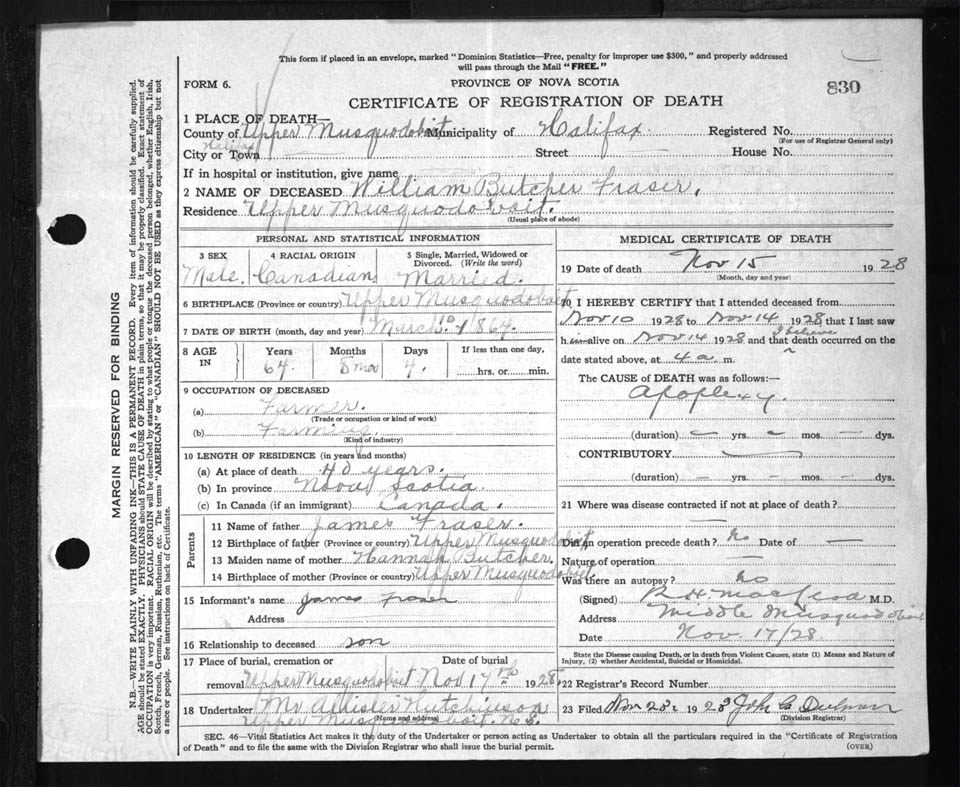 This form if placed in an envelope, marked "Dominion Statistics—Free, penalty for improper use $300," and properly addressed
will pass through the Mail "FREE."
FORM 6.
PROVINCE OF NOVA SCOTIA
830
CERTIFICATE OF REGISTRATION OF DEATH
1 PLACE OF DEATH—
County of Upper Musquodoboit Municipality of Halifax. Registered No.
(For use of Registrar General only)
Halifax
City or Town Street House No.
If in hospital or institution, give name
2 NAME OF DECEASED William Butcher Fraser.
Residence Upper Musquodoboit.
(Usual place of abode)
PERSONAL AND STATISTICAL INFORMATION
3 SEX 4 RACIAL ORIGIN 5 Single, Married, Widowed or Divorced. (Write the word)
Male. Canadian. Married.
6 BIRTHPLACE (Province or country) Upper Musquodoboit
7 DATE OF BIRTH (month, day and year) March 10 1864.
8 AGE IN Years Months Days If less than one day,
64. 5 mos 4. hrs. or min.
9 OCCUPATION OF DECEASED
(a) Farmer.
(Trade or occupation or kind of work)
(b) Farming.
(Kind of industry)
10 LENGTH OF RESIDENCE (in years and months)
(a) At place of death 40 years.
(b) In province Nova Scotia
(c) In Canada (if an immigrant) Canada.
Parents
11 Name of father James Fraser.
12 Birthplace of father (Province or country) Upper Musquodoboit
13 Maiden name of mother Hannah Butcher.
14 Birthplace of mother (Province or country) Upper Musquodoboit.
15 Informant's name James Fraser
Address
16 Relationship to deceased son
17 Place of burial, cremation or Date of burial
removal Upper Musquodoboit Nov 17th 1928.
18 Undertaker Mr Allister Hutchinson
Upper Musquodoboit. N.S.
(Name and address)
MEDICAL CERTIFICATE OF DEATH
19 Date of death Nov 15 1928
(Month, day and year)
20 I HEREBY CERTIFY that I attended deceased from
Nov 10 1928 to Nov 14 1928 that I last saw
I believe
h im alive on Nov 14 1928 and that death occurred on the
date stated above, at 4 a m.
The CAUSE of DEATH was as follows:—
Apoplexy.
(duration) — yrs. — mos. — dys.
CONTRIBUTORY
(duration) — yrs. — mos. — dys.
21 Where was disease contracted if not at place of death?
Did an operation precede death? No Date of —
Nature of operation —
Was there an autopsy? No
(Signed) R H MacLeod M.D.
Address Middle Musquodoboit
Date Nov. 17/28
State the Disease causing Death, or in death from Violent Causes, state (1) Means and Nature of
Injury, (2) whether Accidental, Suicidal or Homicidal.
22 Registrar's Record Number
23 Filed Nov 28 1928
(Division Registrar)
SEC. 46—Vital Statistics Act makes it the duty of the Undertaker or person acting as Undertaker to obtain all the particulars required in the "Certificate of Registration
of Death" and to file the same with the Division Registrar who shall issue the burial permit. (OVER)
MARGIN RESERVED FOR BINDING
N.B.—WRITE PLAINLY WITH UNFADING INK—THIS IS A PERMANENT RECORD. Every item of information should be carefully supplied.
AGE should be stated EXACTLY. PHYSICIANS should STATE CAUSE OF DEATH in plain terms, so that it may be properly classified. Exact statement of
OCCUPATION is very important. RACIAL ORIGIN will be described by stating to what people or tongue the deceased person belonged, whether English, Irish,
Scotch, French, German, Russian, Ruthenian, etc. The terms "AMERICAN" or "CANADIAN" SHOULD NOT BE USED as they express citizenship but not
a race or people. See instructions on back of Certificate.